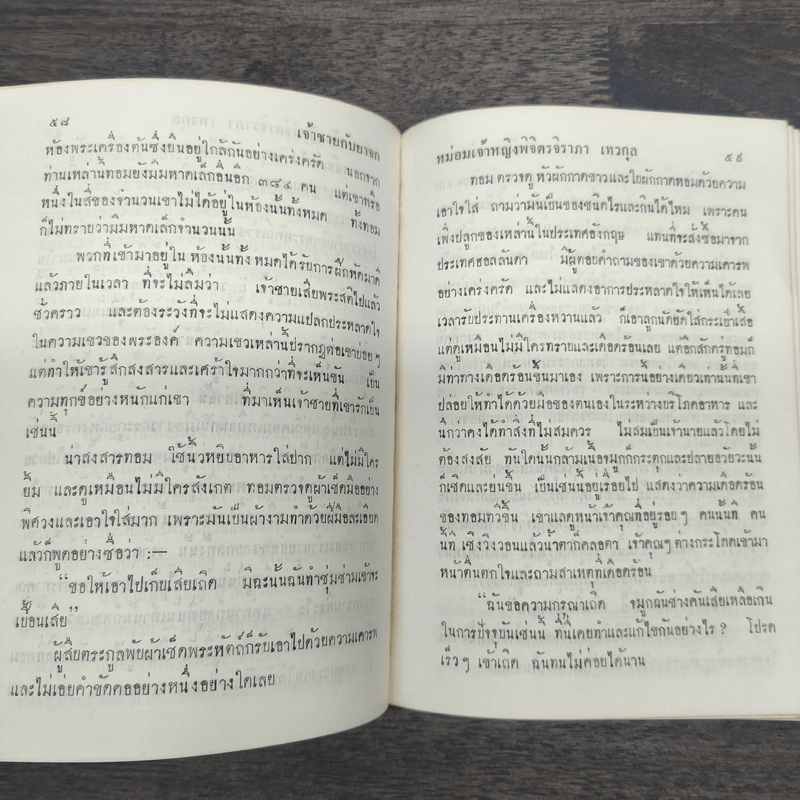 ๕๘
เจ้าชายกับยาจก
ห้องพระเครื่องต้นซึ่งยืนอยู่ใกล้กันอย่างเคร่งครัด นอกจาก
ท่านเหล่านี้ทอมยังมีมหาดเล็กอื่นอีก ๓๘๔ คน แต่เขาหรือ
หนึ่งในสี่ของจำนวนเขาไม่ได้อยู่ในห้องนั้นทั้งหมด ทั้งทอม
ก็ไม่ทราบว่ามีมหาดเล็กจำนวนนั้น
พวกที่เข้ามาอยู่ในห้องนั้นทั้งหมดได้รับการฝึกหัดมาดี
แล้วภายในเวลา ที่จะไม่ลืมว่า เจ้าชายเสียพระสติไปแล้ว
ชั่วคราว และต้องระวังที่จะไม่แสดงความแปลกประหลาดใจ
ในความเขวของพระองค์ ความเขวเหล่านี้ปรากฏต่อเขาบ่อยๆ
แต่ทำให้เขารู้สึกสงสารและเศร้าใจมากกว่าที่จะเห็นขัน เป็น
ความทุกข์อย่างหนักแก่เขา ที่มาเห็นเจ้าชายที่เขารักเป็น
เช่นนั้น
น่าสงสารทอม ใช้นิ้วหยิบอาหารใส่ปาก แต่ไม่มีใคร
ยิ้ม และดูเหมือนไม่มีใครสังเกต ทอมตรวจดูผ้าเช็ดมืออย่าง
พิศวงและเอาใจใส่มาก เพราะมันเป็นผ้างามทำด้วยฝีมือละเอียด
แล้วก็พูดอย่างซื่อว่า :—
“ขอให้เอาไปเก็บเสียเถิด มิฉะนั้นฉันทำซุ่มซ่ามเข้าจะ
เปื้อนเสีย”
ผู้สืบตระกูลพัยผ้าเช็ดพระหัตถ์ก็รับเอาไปด้วยความเคารพ
และไม่เอ่ยคำขัดคออย่างหนึ่งอย่างใดเลย
หม่อมเจ้าหญิงพิจิตรจิราภา เทวกุล
๕๙
ทอม ตรวจดู หัวผักกาดขาวและใบผักกาดหอมด้วยความ
เอาใจใส่ ถามว่ามันเป็นของชนิดไรและกินได้ไหม เพราะคน
เพิ่งปลูกของเหล่านี้ในประเทศอังกฤษ แทนที่จะสั่งซื้อมาจาก
ประเทศฮอลลันดา มีผู้ตอบคำถามของเขาด้วยความเคารพ
อย่างเคร่งครัด และไม่แสดงอาการประหลาดใจให้เห็นได้เลย
เวลารับประทานเครื่องหวานแล้ว ก็เอาลูกนัตยัดใส่กระเป๋าเสื้อ
แต่ดูเหมือนไม่มีใครทราบและเดือดร้อนเลย แต่อีกสักครู่ทอมก็
มีท่าทางเดือดร้อนขึ้นมาเอง เพราะการนี้อย่างเดียวเท่านั้นที่เขา
ปล่อยให้ทำได้ด้วยมือของตนเองในระหว่างบริโภคอาหาร และ
นึกว่าคงได้ทำสิ่งที่ไม่สมควร ไม่สมเป็นเจ้านายแล้วโดยไม่
ต้องสงสัย ทันใดนั้นกล้ามเนื้อจมูกก็กระตุกและปลายอวัยวะนั้น
ก็เชิดและย่นขึ้น เป็นเช่นนี้อยู่เรื่อยไป แสดงว่าความเดือดร้อน
ของทอมทวีขึ้น เขาแลดูหน้าเจ้าคุณที่อยู่รอบๆ คนนั้นที คน
นี้ที เชิงวิงวอนแล้วน้ำตาก็คลอตา เจ้าคุณๆ ต่างกระโดดเข้ามา
หน้าตื่นตกใจและถามสาเหตุที่เดือดร้อน
“ฉันขอความกรุณาเถิด จมูกฉันช่างคันเสียเหลือเกิน
ในการปัจจุบันเช่นนี้ ที่นี่เคยทำและแก้ไขกันอย่างไร ? โปรด
เร็วๆ เข้าเถิด ฉันทนไม่ค่อยได้นาน